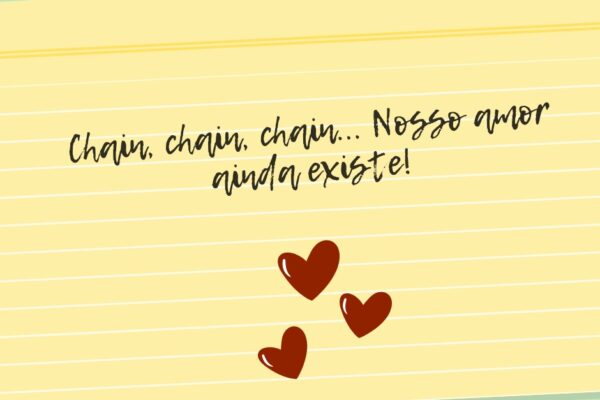 Chain, chain, chain... Nosso amor
ainda existe!